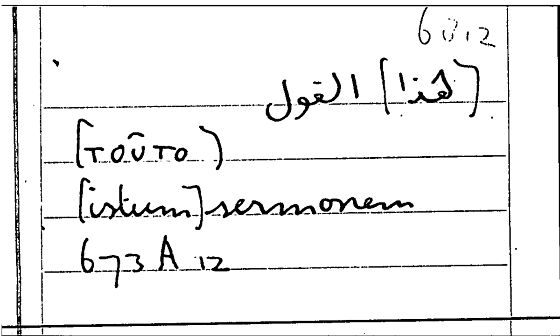 60,2
[هذا] القول
[τοῦτο)
[istum] sermonem
673 A 12